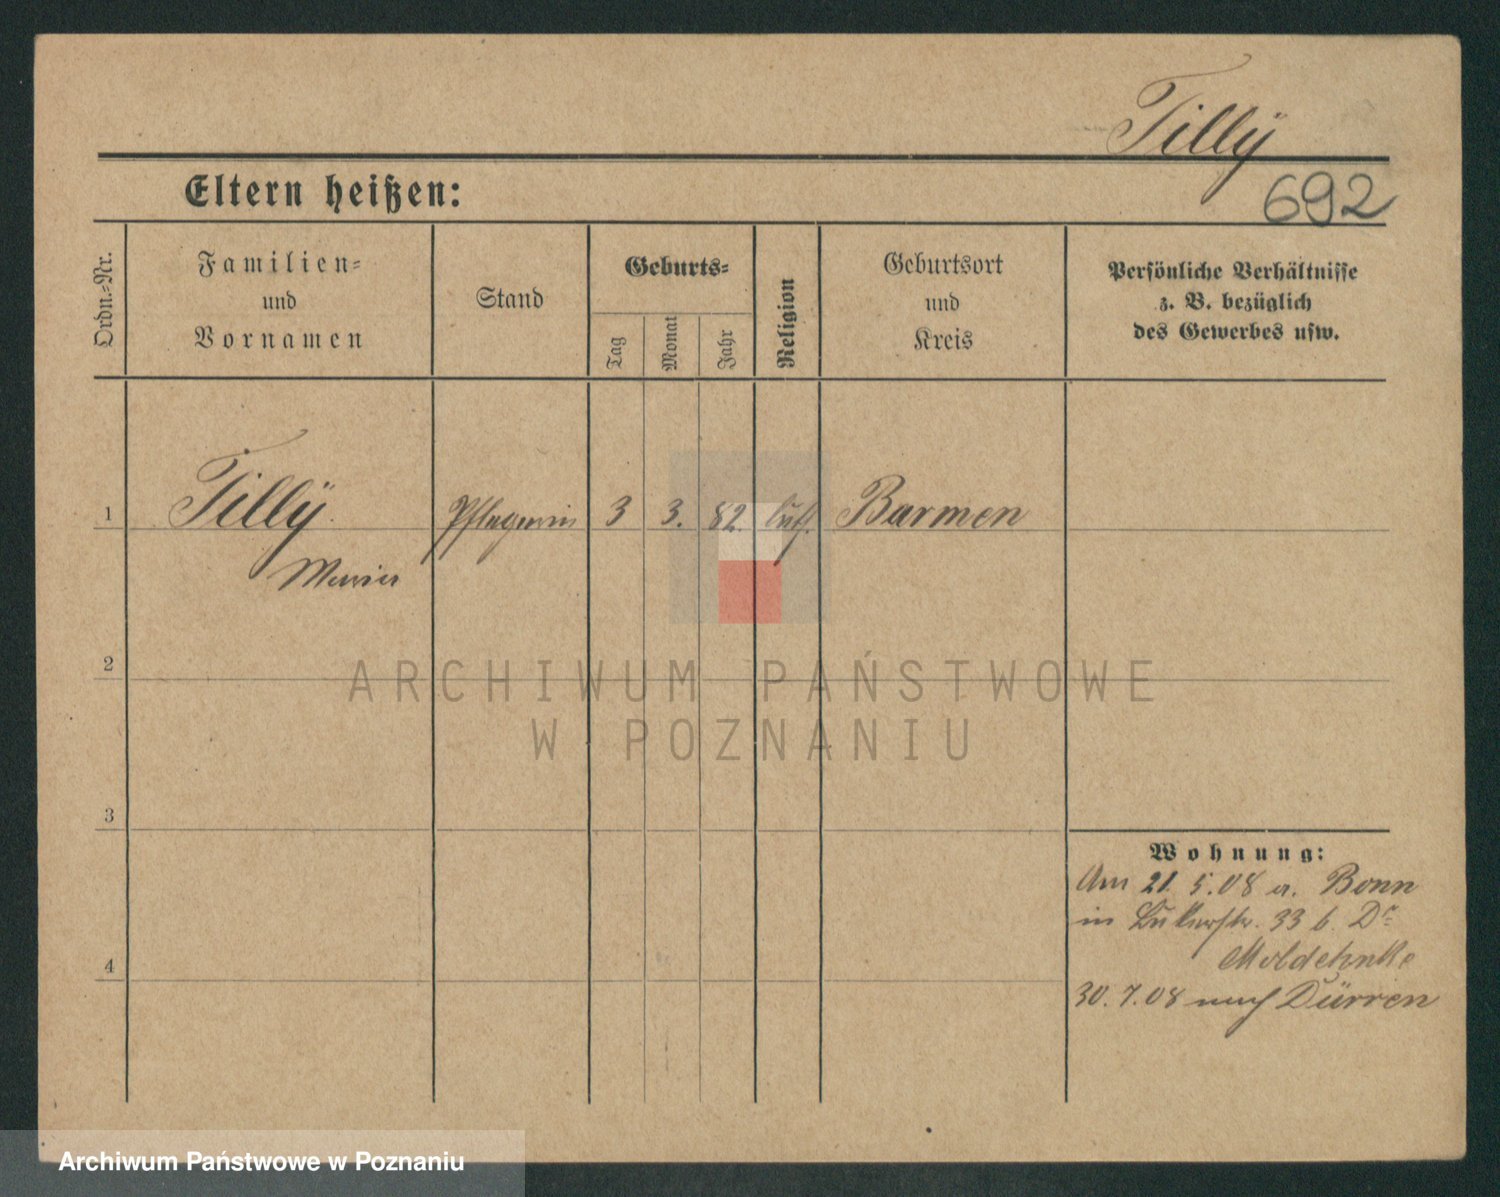 Tillÿ
692
Eltern heißen:
Ordn.-Nr.
Familien-
und
Vornamen
Stand
Geburts-
Tag
Monat
Jahr
Religion
Geburtsort
und
Kreis
Persönliche Verhältnisse
z. B. bezüglich
des Gewerbes usw.
1
Tillÿ
Pflegerin
3
3.
82.
luth.
Barmen
Maria
2
ARCHIWUM PAŃSTWOWE
W POZNANIU
3
Wohnung:
Am 21. 5. 08 a. Bonn
in 33 b. Dr
Moldehnke
4
30. 7. 08 nach Dürren
Archiwum Państwowe w Poznaniu